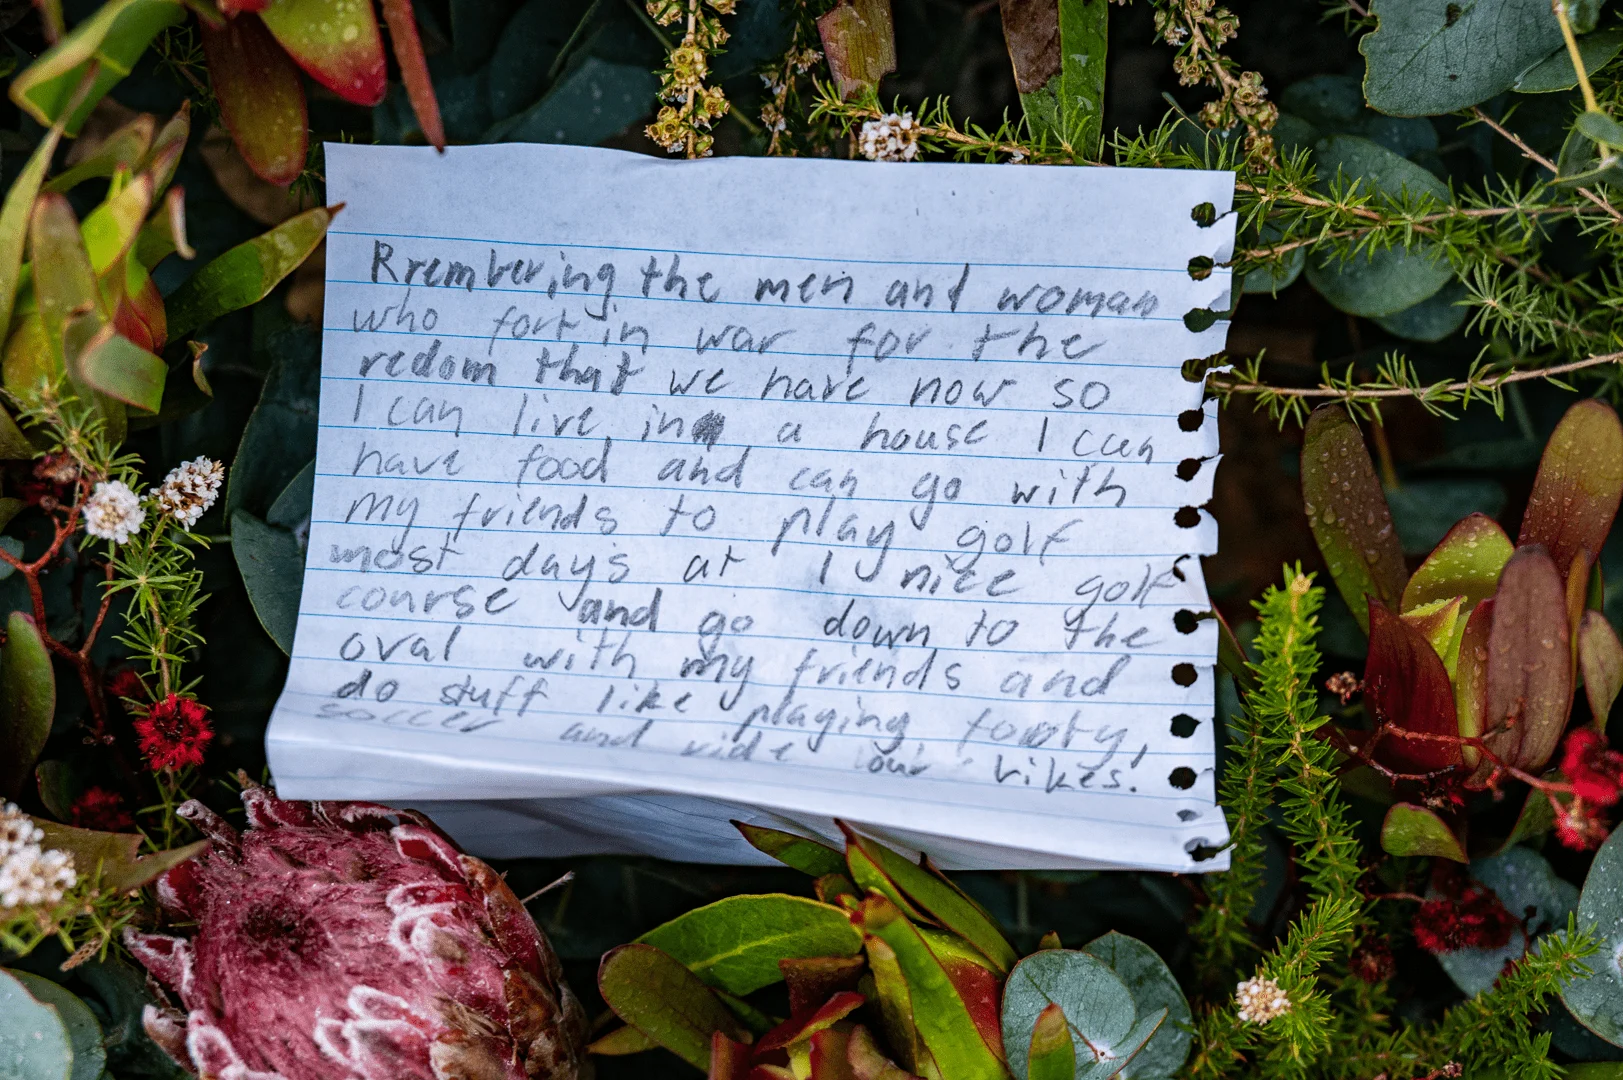 Rrembering the men and woman
who fort in war for the
redom that we have now so
I can live in a house I can
have food and can go with
my friends to play golf
most days at I nice golf
course and go down to the
oval with my friends and
do stuff like playing footy,
soccer and ride our bikes.